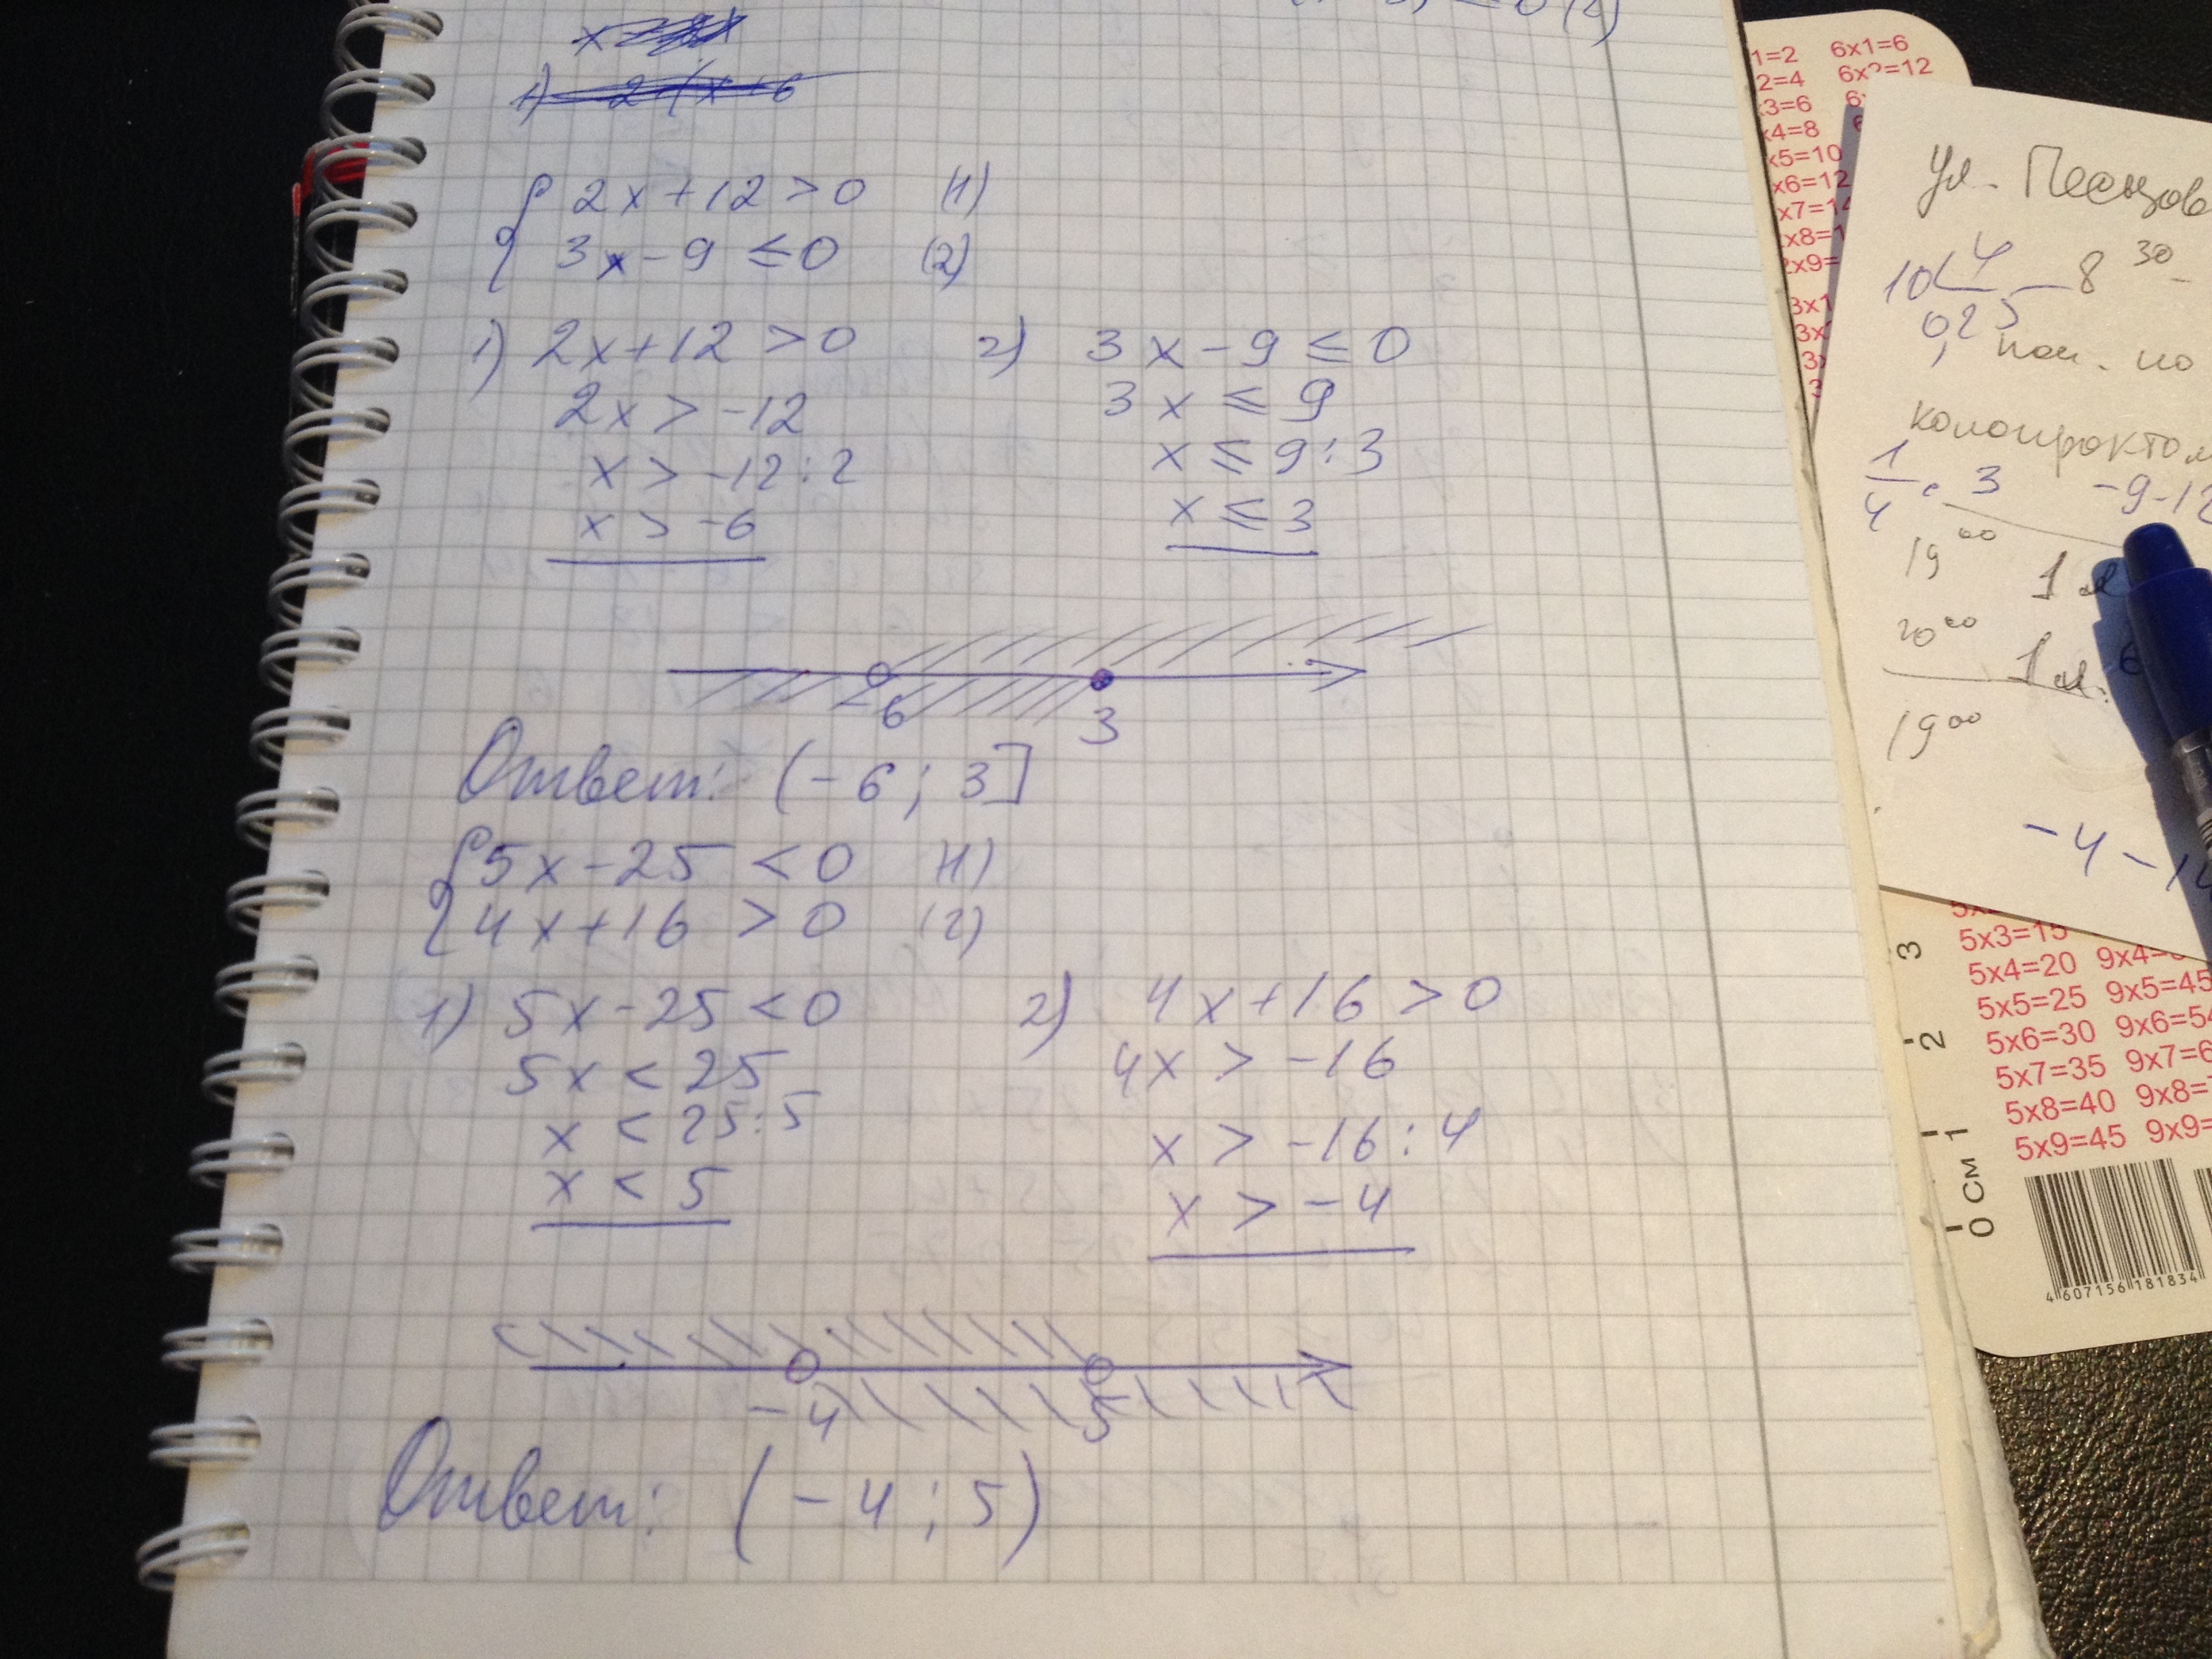 { 2x+12>0 (1)
3x-9 ≤0 (2)
1) 2x+12>0 2) 3x-9≤0
2x>-12 3x≤9
x>-12:2 x≤9:3
x>-6 x≤3
-6 3
Ответ: (-6; 3]
{ 5x-25<0 (1)
4x+16>0 (2)
1) 5x-25<0 2) 4x+16>0
5x<25 4x>-16
x<25:5 x>-16:4
x<5 x>-4
-4 5
Ответ: (-4; 5)
1=2 6x1=6
2=4 6x2=12
x3=6
x4=8
x5=10
x6=12
x7=14
x8=1
2x9=
3x1
3x
ул.
10 4 8 30 -
0,25
1/4 · 3 -9-12
19 00 1
20 00 1
19 00
-4-1
5x3=15
5x4=20 9x4=
5x5=25 9x5=45
5x6=30 9x6=54
5x7=35 9x7=6
5x8=40 9x8=7
5x9=45 9x9=
3
2
1
0 См
4 607156 181834